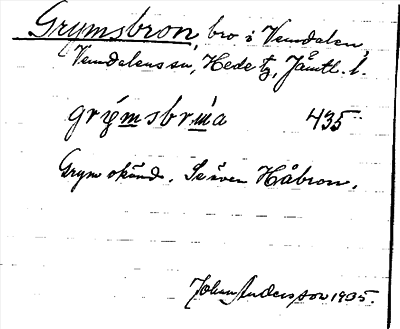 Grymsbron, bro i Vemdalen,
Vemdalens sn, Hede tg, Jämtl. l.
grýmsbrùa 435
Grym okänd. Se även Håbron.
Johan Andersson 1935.